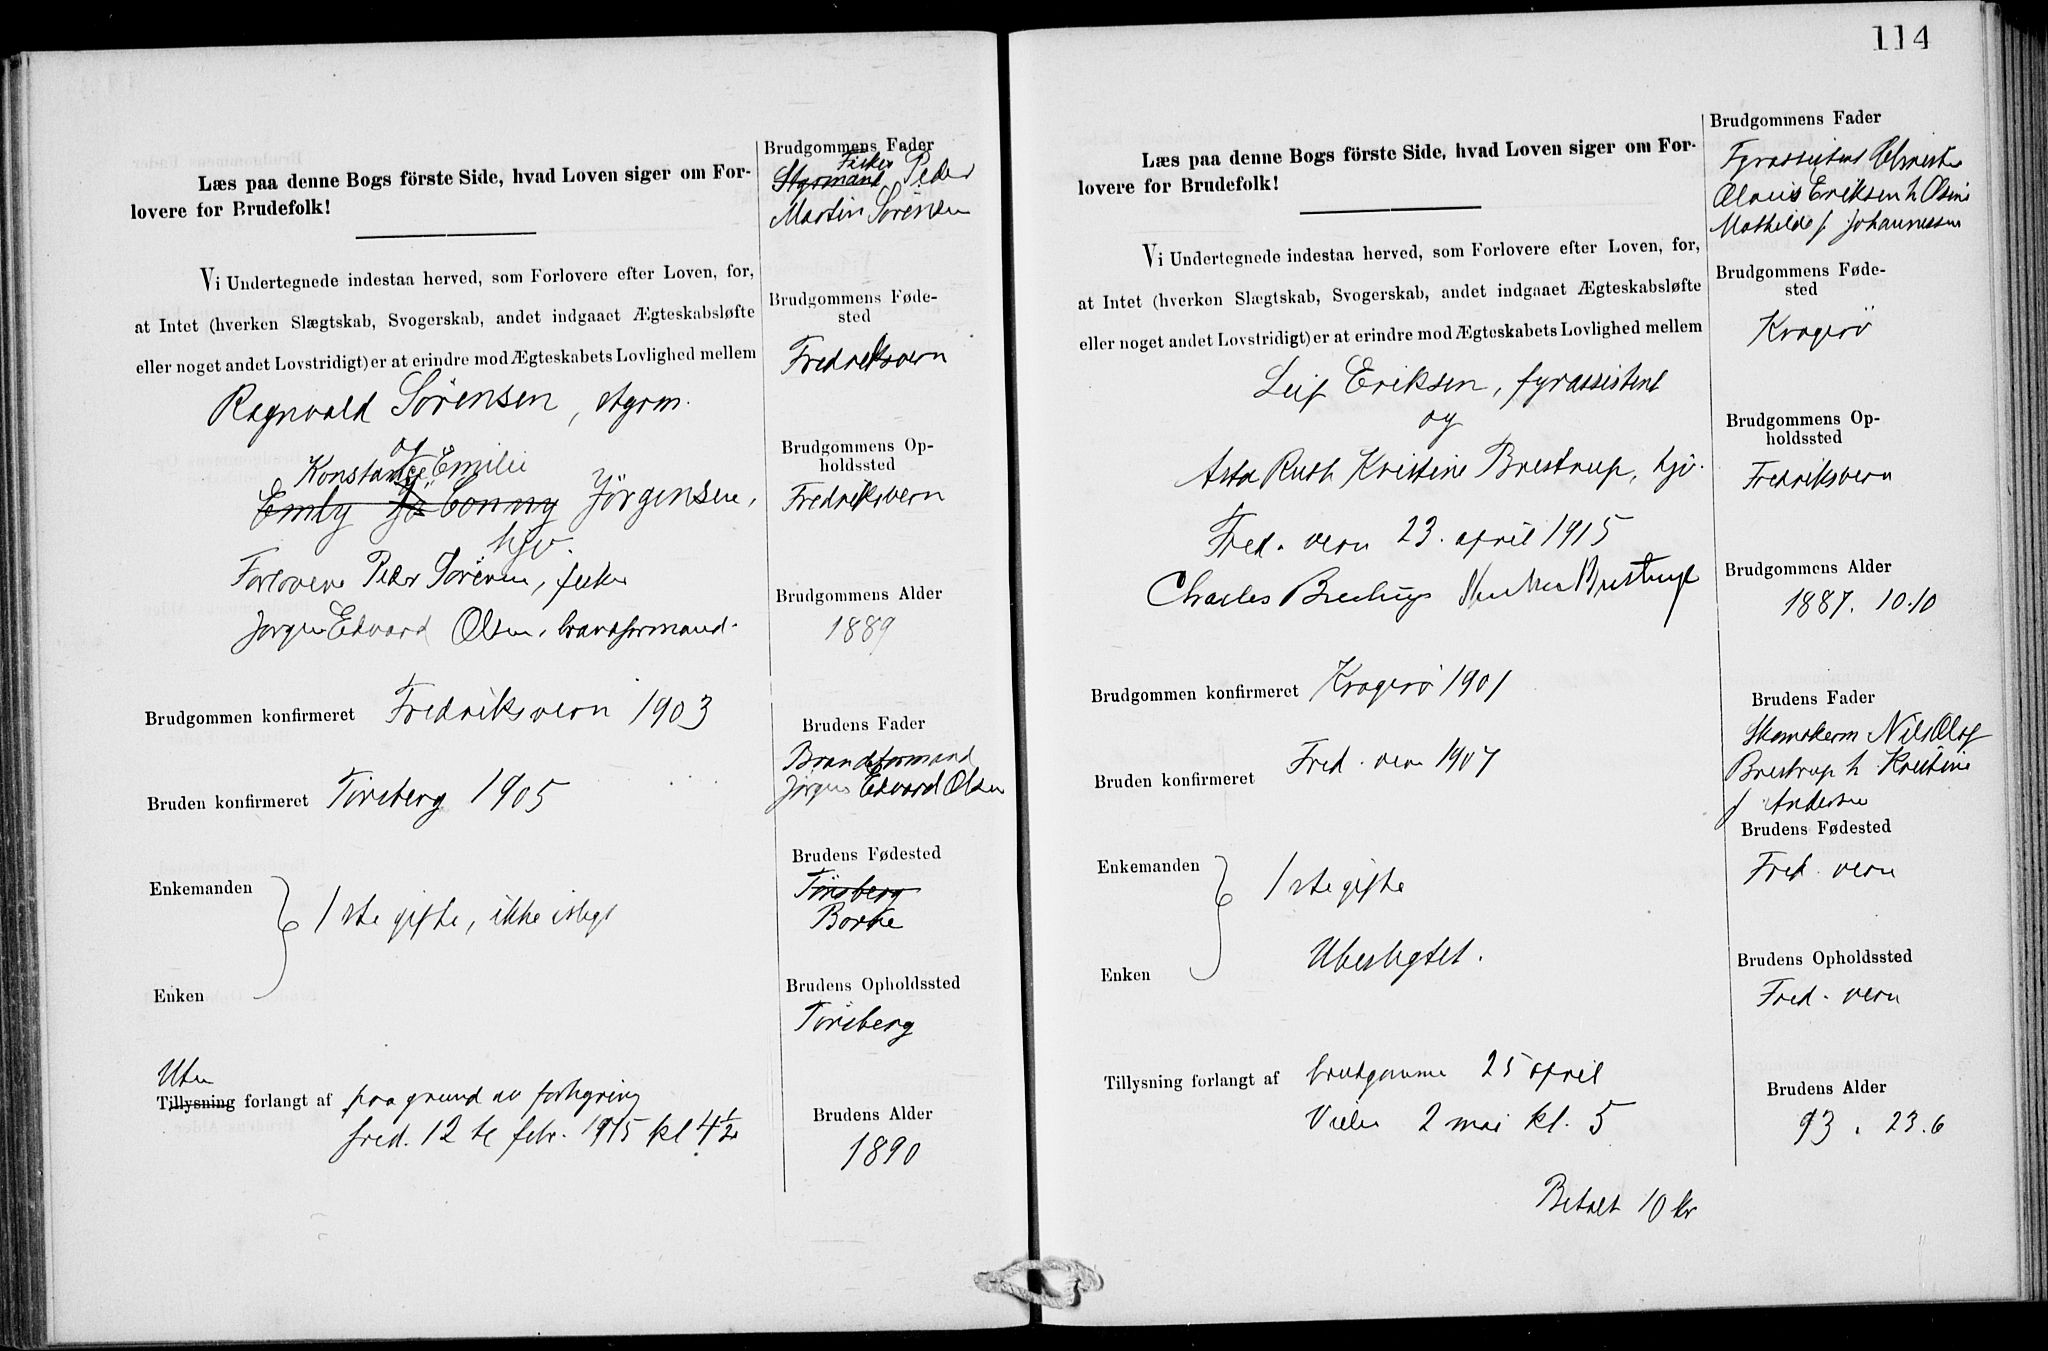 Læs paa denne Bogs förste Side, hvad Loven siger om For-
lovere for Brudefolk!
Vi Undertegnede indestaa herved, som Forlovere efter Loven, for,
at Intet (hverken Slægtskab, Svogerskab, andet indgaaet Ægteskabsløfte
eller noget andet Lovstridigt) er at erindre mod Ægteskabets Lovlighed mellem
Ragnvald Sørensen, styrm.
og
Konstance Emilie
Emily Conny Jørgensen,
hjv.
Forlovere Peder Sørensen, fisker
Jørgen Edvard Olsen, brandformand.
Brudgommen konfirmeret Fredriksvern 1903
Bruden konfirmeret Tönsberg 1905
Enkemanden
1 ste gifte, ikke
Enken
Uten
Tillysning forlangt af paa grund av
fred. 12 te febr. 1915 kl 4½
Brudgommens Fader
Fisker
Styrmand Peder
Martin Sørensen
Brudgommens Føde-
sted
Fredriksvern
Brudgommens Op-
holdssted
Fredriksvern
Brudgommens Alder
1889
Brudens Fader
Brandformand
Jørgen Edvard Olsen
Brudens Fødested
Tönsberg
Borre
Brudens Opholdssted
Tönsberg
Brudens Alder
1890
114
Læs paa denne Bogs förste Side, hvad Loven siger om For-
lovere for Brudefolk!
Vi Undertegnede indestaa herved, som Forlovere efter Loven, for,
at Intet (hverken Slægtskab, Svogerskab, andet indgaaet Ægteskabsløfte
eller noget andet Lovstridigt) er at erindre mod Ægteskabets Lovlighed mellem
Leif Eriksen, fyrassistent
og
Asta Ruth Kristine Brestrup, hjv.
Fred. vern 23. april 1915
Charles Brestrup Brestrup
Brudgommen konfirmeret Kragerö 1901
Bruden konfirmeret Fred. vern 1907
Enkemanden
1 ste gifte
Ubeslegtet.
Enken
Tillysning forlangt af brudgommen 25 april
Vielse 2 mai kl. 5
Betalt 10 kr
Brudgommens Fader
Fyrassistent
Olaus Eriksen h Olsine
Mathilde f. Johannessen
Brudgommens Føde-
sted
Kragerö
Brudgommens Op-
holdssted
Fredriksvern
Brudgommens Alder
1887. 10.10
Brudens Fader
Nils Olaf
Brestrup h Kristine
f Andersen
Brudens Fødested
Fred. vern
Brudens Opholdssted
Fred. vern
Brudens Alder
93. 23.6